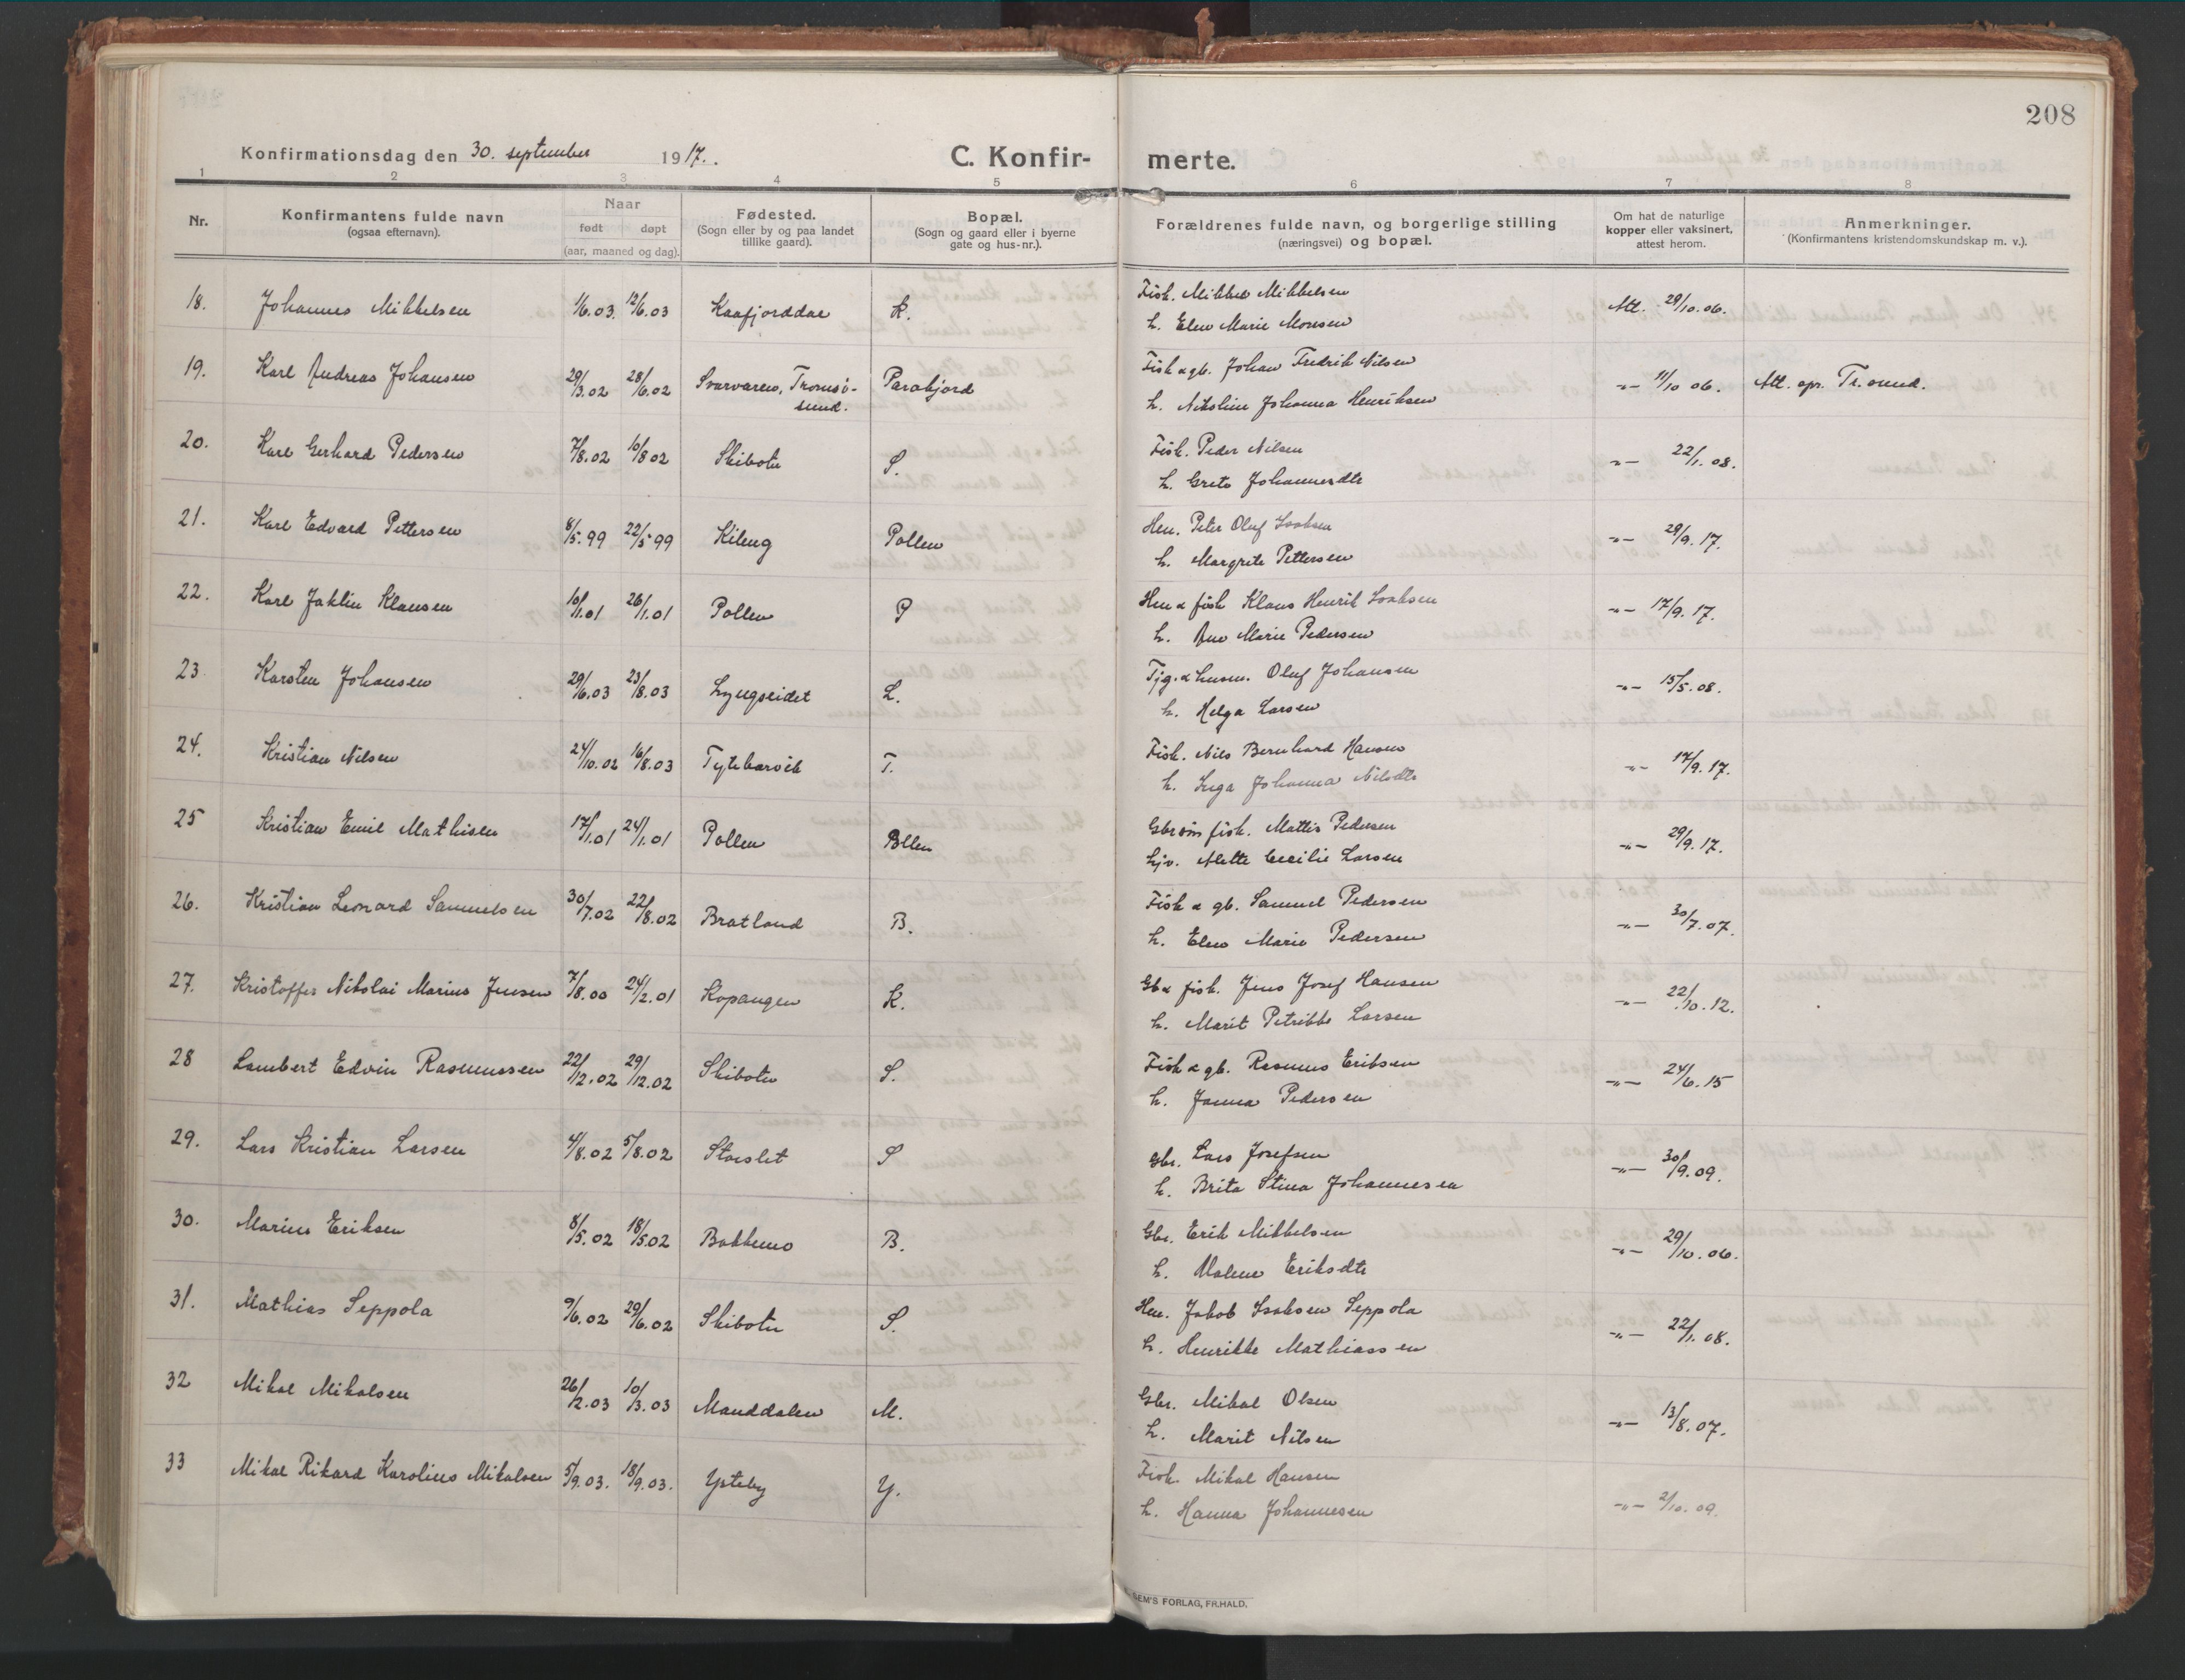 208
Konfirmationsdag den 30. september 1917.
C. Konfir- merte.
1 2 3 4 5 6 7 8
Nr.
Konfirmantens fulde navn
(ogsaa efternavn).
Naar
født døpt
(aar, maaned og dag).
Fødested.
(Sogn eller by og paa landet
tillike gaard).
Bopæl.
(Sogn og gaard eller i byerne
gate og hus-nr.).
Forældrenes fulde navn, og borgerlige stilling
(næringsvei) og bopæl.
Om hat de naturlige
kopper eller vaksinert,
attest herom.
Anmerkninger.
(Konfirmantens kristendomskundskap m. v.).
18. Johannes Mikkelsen 1/6.03. 12/6.03 Kaafjorddal K. Fisk. Mikkel Mikkelsen Att. 29/10.06.
h. Elen Marie Monsen
19. Karl Andreas Johansen 29/3.02 28/6.02 Svarvaren, Tromsø-
sund. Parakjord Fisk & gb. Johan Fredrik Nilsen -"- 11/10 06. Att. opr. Tr.sund.
h. Nikoline Johanna Henriksen
20. Karl Gerhard Pedersen 7/8.02 10/8 02 Skibotn S. Fisk. Peder Nilsen -"- 22/1.08.
h. Grete Johannesdtr
21. Karl Edvard Pettersen 8/5.99 22/5 99 Kileng Pollen Hen. Peter Oluf Isaksen -"- 29/9.17.
h. Margrete Pettersen
22. Karl Joklin Klausen 10/1.01 26/1.01 Pollen P Hen & fisk Klaus Henrik Isaksen -"- 17/9.17.
h. Ane Marie Pedersen
23. Karsten Johansen 29/6.03 23/8.03 Lyngseidet L. Tjg. & husm. Oluf Johansen -"- 15/5.08.
h. Helga Larsen
24. Kristian Nilsen 24/10.02 16/8.03 Tytebærvik T. Fisk. Nils Bernhard Hansen -"- 17/9.17.
h. Inga Johanna Nilsdtr
25 Kristian Emil Mathisen 17/1.01 24/1.01 Pollen Pollen Gbrsøn fisk. Mattis Pedersen -"- 29/9.17.
hjv. Mette Cecilie Larsen
26. Kristian Leonard Samuelsen 30/7.02 22/8.02 Bratland B. Fisk & gb. Samuel Pedersen -"- 30/7.07.
h. Elen Marie Pedersen
27. Kristoffer Nikolai Marius Jensen 7/8.00 24/2.01 Kopangen K. Gb & fisk. Jens Josef Hansen -"- 22/10.12.
h. Marit Petrikke Larsen
28 Lambert Edvin Rasmussen 22/12.02 29/12.02 Skibotn S. Fisk & gb. Rasmus Eriksen -"- 24/6.15
h. Janna Pedersen
29. Lars Kristian Larsen 4/8.02 5/8.02 Storslet S Gbr. Lars Josefsen -"- 30/9.09.
h. Brita Stina Johannesen
30. Marius Eriksen 8/5.02 18/5.02 Bakkemo B. Gbr. Erik Mikkelsen -"- 29/10.06.
h. Malene Eriksdtr
31. Mathias Seppola 9/6.02 29/6.02 Skibotn S. Hen. Jakob Isaksen Seppola -"- 22/1.08.
h. Henrikke Mathiassen
32 Mikal Mikalsen 26/2.03 10/3.03 Manddalen M. Gbr. Mikal Olsen -"- 13/8.07.
h. Marit Nilsen
33 Mikal Rikard Karolius Mikalsen 5/9.03. 18/9.03. Ysteby Y. Fisk. Mikal Hansen -"- 2/10.09.
h. Hanna Johannesen
SEM'S FORLAG, FR.HALD.